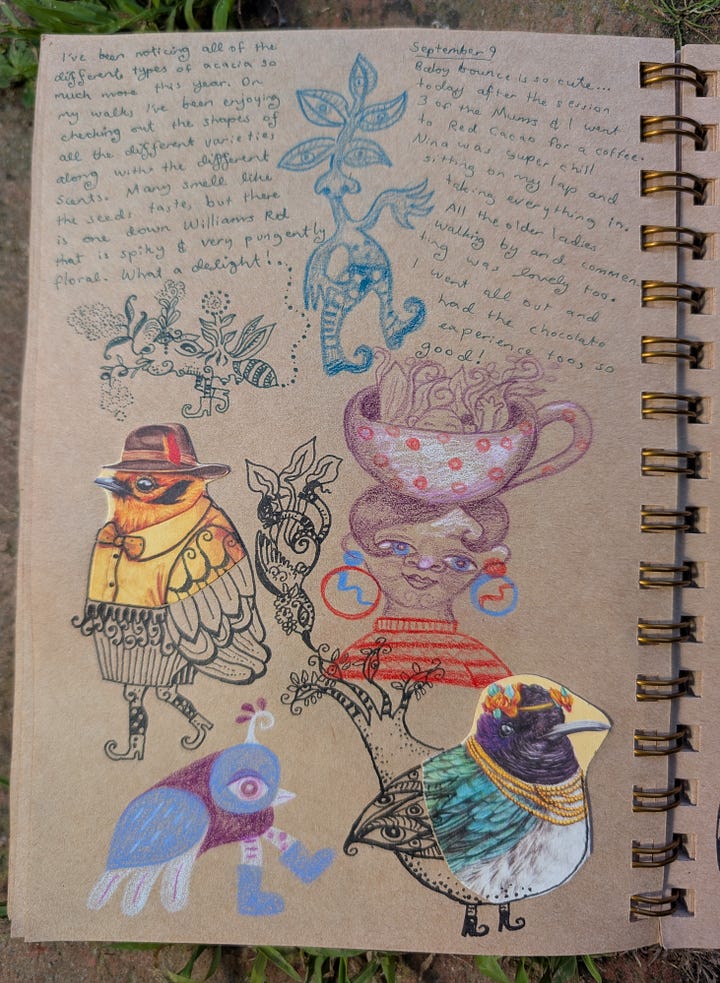 I've been noticing all of the
different types of acacia so
much more this year. On
my walks I've been enjoying
checking out the shapes of
all the different varieties
along with the different
scents. Many smell like
the seeds taste, but there
is one down Williams Rd
that is spiky & very pungently
floral. What a delight!
September 9
Baby bounce is so cute...
today after the session
3 of the Mums & I went
to Red Cacao for a coffee.
Nina was super chill
sitting on my lap and
taking everything in.
All the older ladies
walking by and commen
ting was lovely too.
I went all out and
had the chocolate
experience too, so
good!